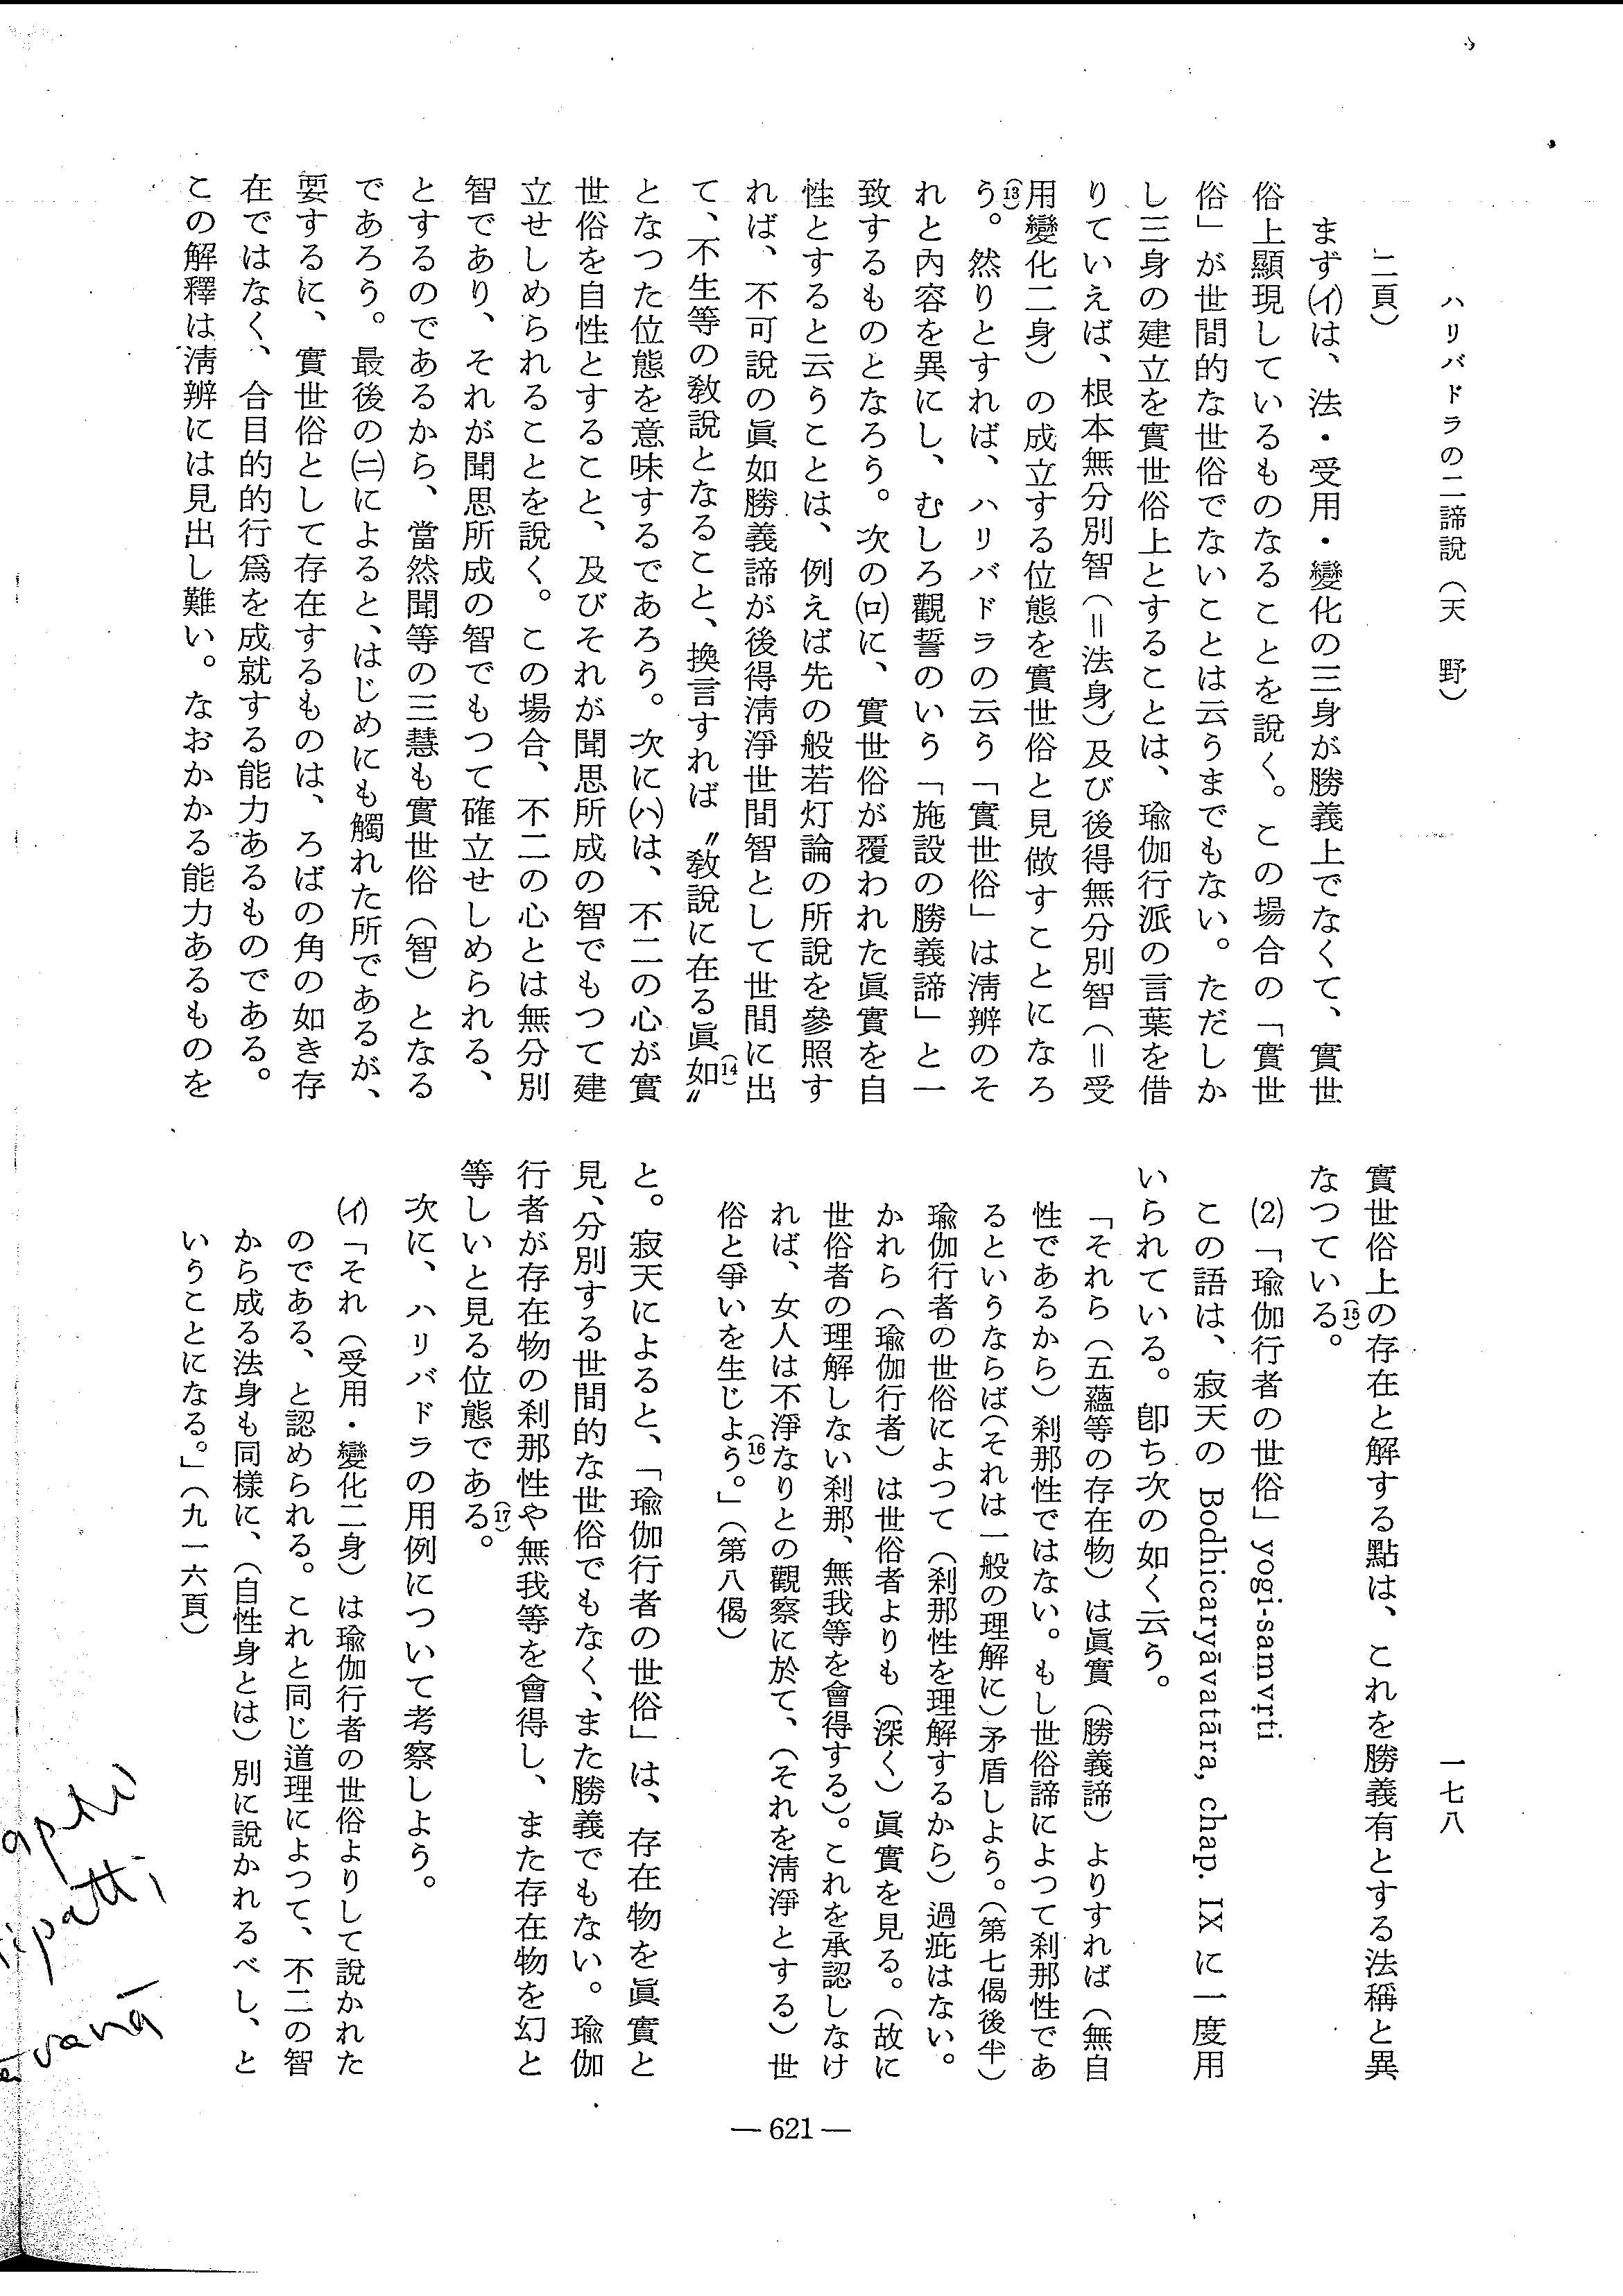 ハリバドラの二諦說（天　野）
一七八
二頁）
まず(イ)は、法・受用・變化の三身が勝義上でなくて、實世
俗上顯現しているものなることを説く。この場合の「實世
俗」が世間的な世俗でないことは云うまでもない。ただしか
し三身の建立を實世俗上とすることは、瑜伽行派の言葉を借
りていえば、根本無分別智（＝法身）及び後得無分別智（＝受
用變化二身）の成立する位態を實世俗と見做すことになろ
う。(13)然りとすれば、ハリバドラの云う「實世俗」は淸辨のそ
れと内容を異にし、むしろ觀誓のいう「施設の勝義諦」と一
致するものとなろう。次の(ロ)に、實世俗が覆われた眞實を自
性とすると云うことは、例えば先の般若灯論の所説を參照す
れば、不可說の眞如勝義諦が後得淸淨世間智として世間に出
て、不生等の敎說となること、換言すれば〝敎說に在る眞如〟(14)
となつた位態を意味するであろう。次に(ハ)は、不二の心が實
世俗を自性とすること、及びそれが聞思所成の智でもつて建
立せしめられることを説く。この場合、不二の心とは無分別
智であり、それが聞思所成の智でもつて確立せしめられる、
とするのであるから、當然聞等の三慧も實世俗（智）となる
であろう。最後の(ニ)によると、はじめにも觸れた所であるが、
要するに、實世俗として存在するものは、ろばの角の如き存
在ではなく、合目的的行爲を成就する能力あるものである。
この解釋は淸辨には見出し難い。なおかかる能力あるものを
實世俗上の存在と解する點は、これを勝義有とする法稱と異
なつている。(15)
(2)「瑜伽行者の世俗」yogi-saṃvṛti
この語は、寂天の Bodhicaryāvatāra, chap. IX に一度用
いられている。卽ち次の如く云う。
「それら（五蘊等の存在物）は眞實（勝義諦）よりすれば（無自
性であるから）刹那性ではない。もし世俗諦によつて刹那性であ
るというならば（それは一般の理解に）矛盾しよう。（第七偈後半）
瑜伽行者の世俗によつて（刹那性を理解するから）過疵はない。
かれら（瑜伽行者）は世俗者よりも（深く）眞實を見る。（故に
世俗者の理解しない刹那、無我等を會得する）。これを承認しなけ
れば、女人は不淨なりとの觀察に於て、（それを淸淨とする）世
俗と爭いを生じよう。」(16)（第八偈）
と。寂天によると、「瑜伽行者の世俗」は、存在物を眞實と
見、分別する世間的な世俗でもなく、また勝義でもない。瑜伽
行者が存在物の刹那性や無我等を會得し、また存在物を幻と
等しいと見る位態である。(17)
次に、ハリバドラの用例について考察しよう。
(イ)「それ（受用・變化二身）は瑜伽行者の世俗よりして説かれた
のである、と認められる。これと同じ道理によつて、不二の智
から成る法身も同樣に、（自性身とは）別に説かれるべし、と
いうことになる。」（九一六頁）
— 621 —